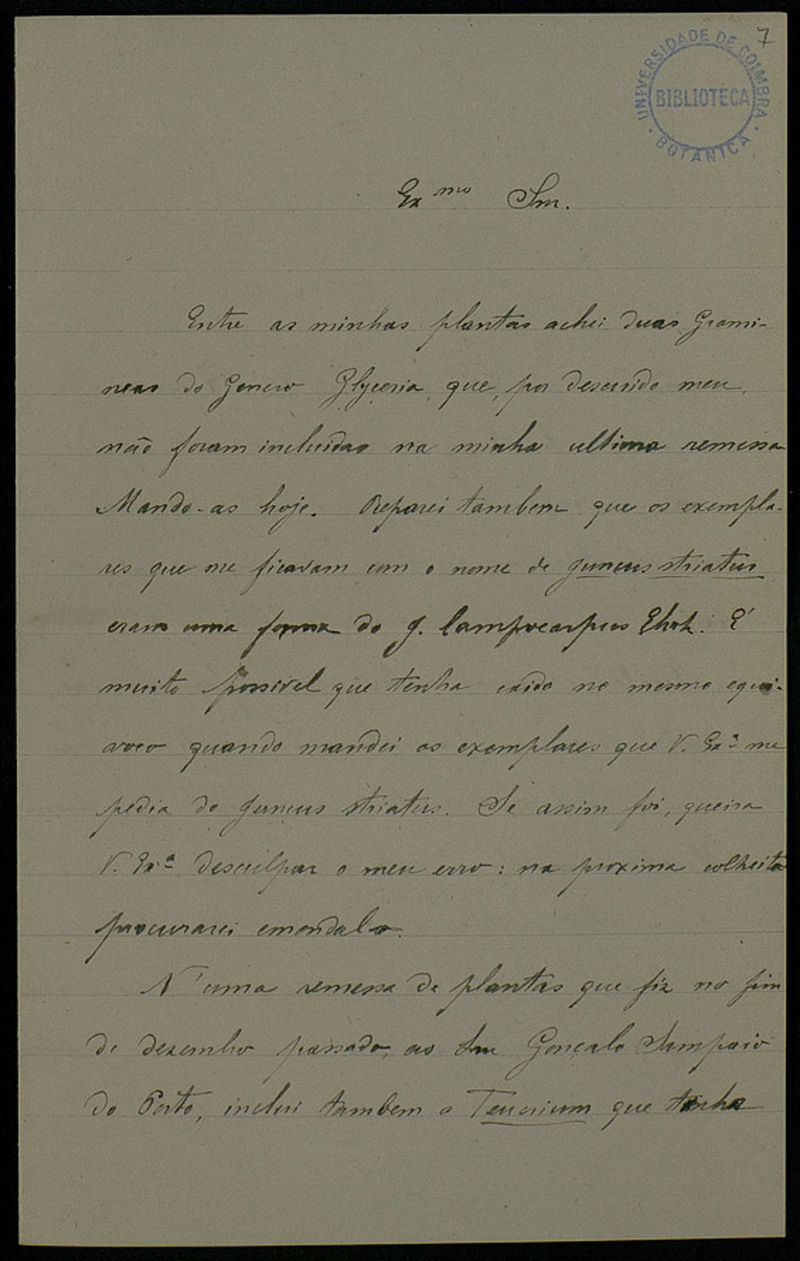 7
UNIVERSIDADE DE COIMBRA
BIBLIOTECA
BOTANICA
Ex mo Snr.
Entre as minhas plantas achei duas Grami-
neas do Genero Glyceria, que, por descuido meu,
não foram incluidas na minha ultima remessa
Mando-as hoje. Reparei tambem que os exempla-
res que me ficavam com o nome de Juncus striatus
eram uma forma do J. lamprocarpus Ehrh. É
muito possivel que tenha caido no mesmo equi-
voco quando mandei os exemplares que V. Exª me
pedia do Juncus striatus. Se assim foi, queira
V. Exª desculpar o meu erro: na proxima colheita
procurarei emendal-o.
N'uma remessa de plantas que fiz no fim
de dezembro passado, ao Snr Gonçalo Sampaio
do Porto, inclui tambem o Teucrium que tinha